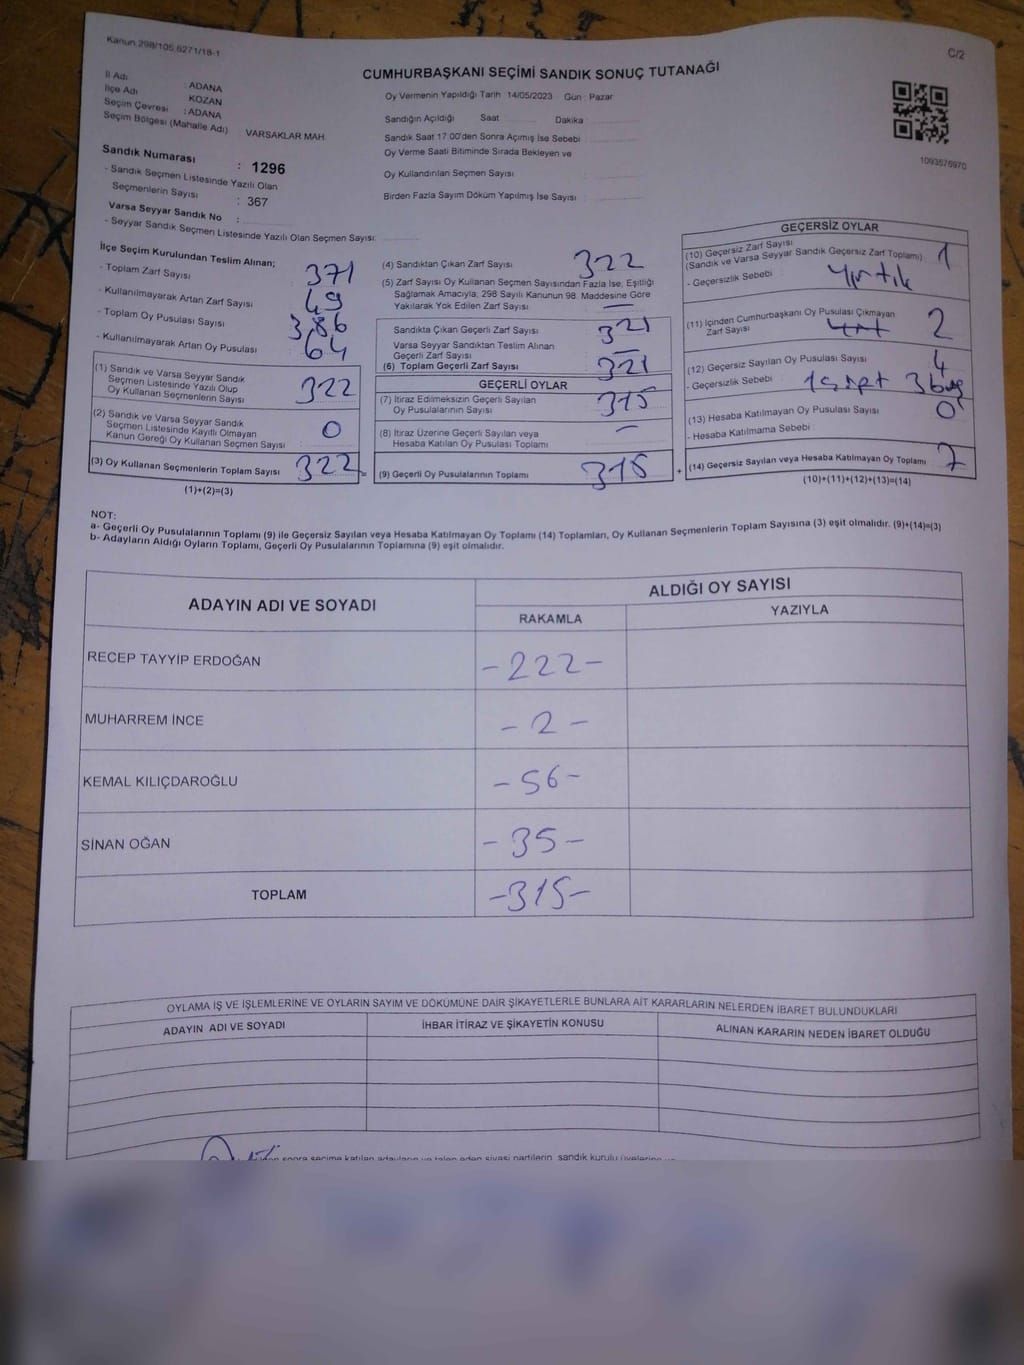 Kanun 298/105,6271/18-1
C/2
CUMHURBAŞKANI SEÇİMİ SANDIK SONUÇ TUTANAĞI
İl Adı : ADANA
İlçe Adı KOZAN
Seçim Çevresi : ADANA
Seçim Bölgesi (Mahalle Adı) VARSAKLAR MAH.
Sandık Numarası : 1296
- Sandık Seçmen Listesinde Yazılı Olan
Seçmenlerin Sayısı : 367
Varsa Seyyar Sandık No :
- Seyyar Sandık Seçmen Listesinde Yazılı Olan Seçmen Sayısı:
Oy Vermenin Yapıldığı Tarih : 14/05/2023 Gün : Pazar
Sandığın Açıldığı Saat Dakika :
Sandık Saat 17.00'den Sonra Açımış İse Sebebi :
Oy Verme Saati Bitiminde Sırada Bekleyen ve
Oy Kullandırılan Seçmen Sayısı :
Birden Fazla Sayım Döküm Yapılmış İse Sayısı :
1093576970
İlçe Seçim Kurulundan Teslim Alınan;
- Toplam Zarf Sayısı : 371
- Kullanılmayarak Artan Zarf Sayısı : 49
- Toplam Oy Pusulası Sayısı : 386
- Kullanılmayarak Artan Oy Pusulası : 64
(1) Sandık ve Varsa Seyyar Sandık
Seçmen Listesinde Yazılı Olup
Oy Kullanan Seçmenlerin Sayısı : 322
(2) Sandık ve Varsa Seyyar Sandık
Seçmen Listesinde Kayıtlı Olmayan
Kanun Gereği Oy Kullanan Seçmen Sayısı : 0
(3) Oy Kullanan Seçmenlerin Toplam Sayısı : 322 =
(1)+(2)=(3)
(4) Sandıktan Çıkan Zarf Sayısı : 322
(5) Zarf Sayısı Oy Kullanan Seçmen Sayısından Fazla İse, Eşitliği
Sağlamak Amacıyla, 298 Sayılı Kanunun 98. Maddesine Göre
Yakılarak Yok Edilen Zarf Sayısı : —
Sandıkta Çıkan Geçerli Zarf Sayısı : 321
Varsa Seyyar Sandıktan Teslim Alınan
Geçerli Zarf Sayısı : —
(6) Toplam Geçerli Zarf Sayısı : 321
GEÇERLİ OYLAR
(7) İtiraz Edilmeksizin Geçerli Sayılan
Oy Pusulalarının Sayısı : 315
(8) İtiraz Üzerine Geçerli Sayılan veya
Hesaba Katılan Oy Pusulası Toplamı : —
(9) Geçerli Oy Pusulalarının Toplamı : 315 +
GEÇERSİZ OYLAR
(10) Geçersiz Zarf Sayısı
(Sandık ve Varsa Seyyar Sandık Geçersiz Zarf Toplamı) : 1
- Geçersizlik Sebebi : Yırtık
(11) İçinden Cumhurbaşkanı Oy Pusulası Çıkmayan
Zarf Sayısı : 2
(12) Geçersiz Sayılan Oy Pusulası Sayısı : 4
- Geçersizlik Sebebi : 3 boş
(13) Hesaba Katılmayan Oy Pusulası Sayısı : 0
- Hesaba Katılmama Sebebi :
(14) Geçersiz Sayılan veya Hesaba Katılmayan Oy Toplamı : 7
(10)+(11)+(12)+(13)=(14)
NOT:
a- Geçerli Oy Pusulalarının Toplamı (9) ile Geçersiz Sayılan veya Hesaba Katılmayan Oy Toplamı (14) Toplamları, Oy Kullanan Seçmenlerin Toplam Sayısına (3) eşit olmalıdır. (9)+(14)=(3)
b- Adayların Aldığı Oyların Toplamı, Geçerli Oy Pusulalarının Toplamına (9) eşit olmalıdır.
ADAYIN ADI VE SOYADI
ALDIĞI OY SAYISI
RAKAMLA YAZIYLA
RECEP TAYYİP ERDOĞAN -222-
MUHARREM İNCE -2-
KEMAL KILIÇDAROĞLU -56-
SİNAN OĞAN -35-
TOPLAM -315-
OYLAMA İŞ VE İŞLEMLERİNE VE OYLARIN SAYIM VE DÖKÜMÜNE DAİR ŞİKAYETLERLE BUNLARA AİT KARARLARIN NELERDEN İBARET BULUNDUKLARI
ADAYIN ADI VE SOYADI İHBAR İTİRAZ VE ŞİKAYETİN KONUSU ALINAN KARARIN NEDEN İBARET OLDUĞU
sonra seçime katılan adayların ve talep eden siyasi partilerin sandık kurulu üyelerine